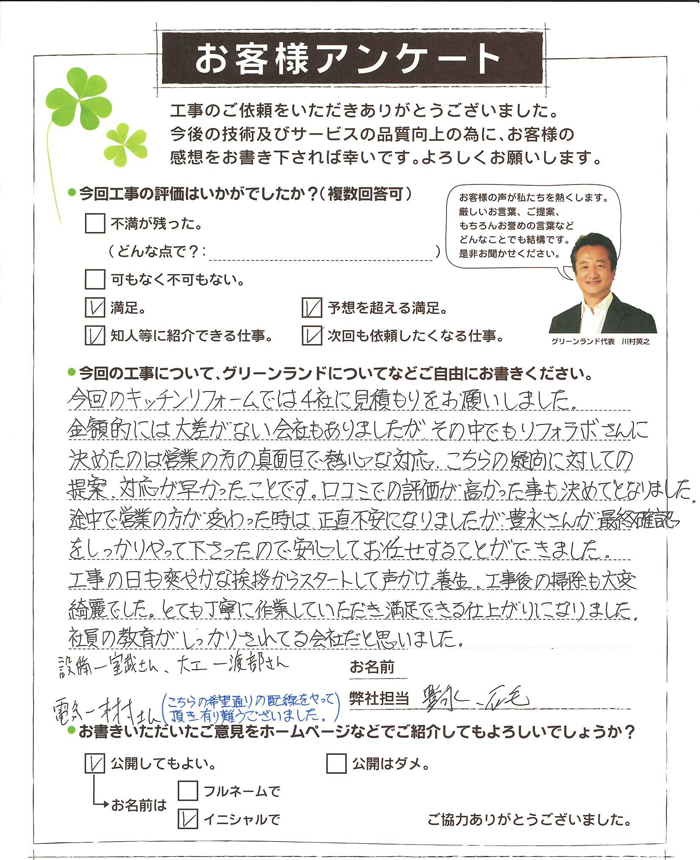 お客様アンケート
工事のご依頼をいただきありがとうございました。
今後の技術及びサービスの品質向上の為に、お客様の
感想をお書き下されば幸いです。よろしくお願いします。
今回工事の評価はいかがでしたか？(複数回答可)
不満が残った。
（どんな点で？：　）
可もなく不可もない。
満足。
予想を超える満足。
知人等に紹介できる仕事。
次回も依頼したくなる仕事。
お客様の声が私たちを熱くします。
厳しいお言葉、ご提案、
もちろんお誉めの言葉など
どんなことでも結構です。
是非お聞かせください。
グリーンランド代表　川村英之
今回の工事について、グリーンランドについてなどご自由にお書きください。
今回のキッチンリフォームでは4社に見積もりをお願いしました。
金額的には大差がない会社もありましたが その中でもリフォラボさんに
決めたのは営業の方の真面目で熱心な対応、こちらの疑問に対しての
提案、対応が早かったことです。口コミでの評価が高かった事も決めてとなりました。
途中で営業の方が変わった時は 正直不安になりましたが 豊永さんが最終確認
をしっかりやって下さったので安心してお任せすることができました。
工事の日も爽やかな挨拶からスタートして声かけ、養生、工事後の掃除も大変
綺麗でした。とても丁寧に作業していただき満足できる仕上がりになりました。
社員の教育がしっかりされてる会社だと思いました。
設備ー室哉さん、大工ー渡部さん
お名前
電気ー村さん
(こちらの希望通りの配線をやって
頂き有り難うございました。)
弊社担当 豊永、石毛
お書きいただいたご意見をホームページなどでご紹介してもよろしいでしょうか？
公開してもよい。
公開はダメ。
お名前は
フルネームで
イニシャルで
ご協力ありがとうございました。